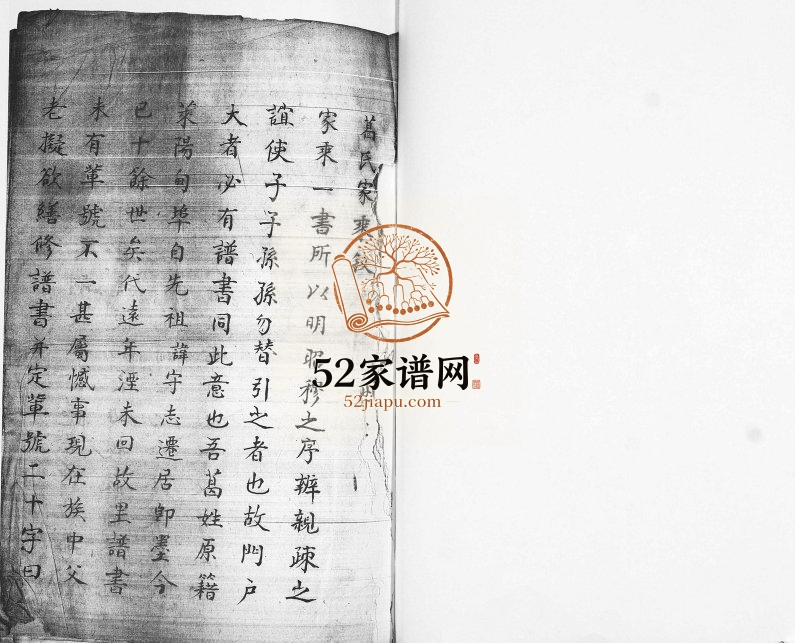 葛氏家乘
家乘一書所以明昭穆之序辨親疎之
誼使子子孫孫勿替引之者也故門户
大者必有譜書同此意也吾葛姓原籍
萊陽旬埠自先祖諱守志遷居即墨今
已十餘世矣代遠年湮未回故里譜書
未有軰號不一甚屬憾事現在族中父
老擬欲繕修譜書并定軰號二十字曰
52家谱网
52jiapu.com